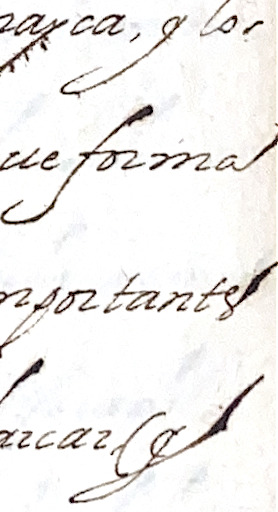 marca, y los
que forma
mportants
arcar (y